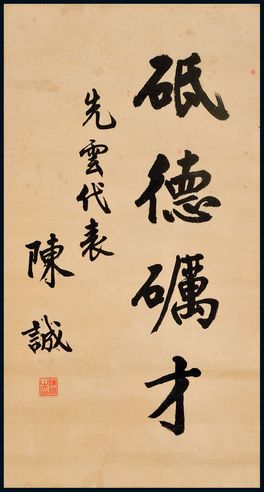 砥德礪才
先雲代表
陳誠